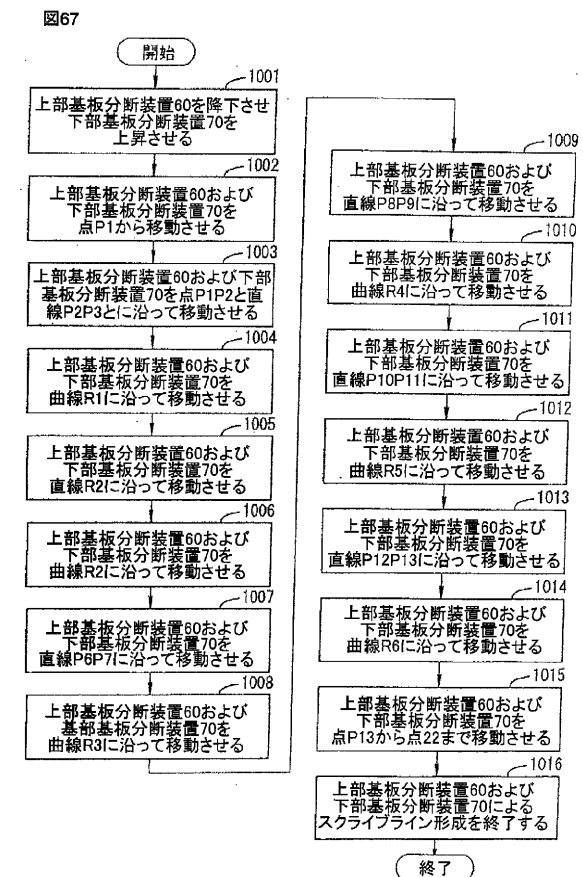 図67
開始
1001
上部基板分断装置60を降下させ
下部基板分断装置70を
上昇させる
1002
上部基板分断装置60および
下部基板分断装置70を
点P1から移動させる
1003
上部基板分断装置60および下部
基板分断装置70を点P1P2と直
線P2P3とに沿って移動させる
1004
上部基板分断装置60および
下部基板分断装置70を
曲線R1に沿って移動させる
1005
上部基板分断装置60および
下部基板分断装置70を
直線R2に沿って移動させる
1006
上部基板分断装置60および
下部基板分断装置70を
曲線R2に沿って移動させる
1007
上部基板分断装置60および
下部基板分断装置70を
直線P6P7に沿って移動させる
1008
上部基板分断装置60および
基部基板分断装置70を
曲線R3に沿って移動させる
1009
上部基板分断装置60および
下部基板分断装置70を
直線P8P9に沿って移動させる
1010
上部基板分断装置60および
下部基板分断装置70を
曲線R4に沿って移動させる
1011
上部基板分断装置60および
下部基板分断装置70を
直線P10P11に沿って移動させる
1012
上部基板分断装置60および
下部基板分断装置70を
曲線R5に沿って移動させる
1013
上部基板分断装置60および
下部基板分断装置70を
直線P12P13に沿って移動させる
1014
上部基板分断装置60および
下部基板分断装置70を
曲線R6に沿って移動させる
1015
上部基板分断装置60および
下部基板分断装置70を
点P13から点22まで移動させる
1016
上部基板分断装置60および
下部基板分断装置70による
スクライブライン形成を終了する
終了